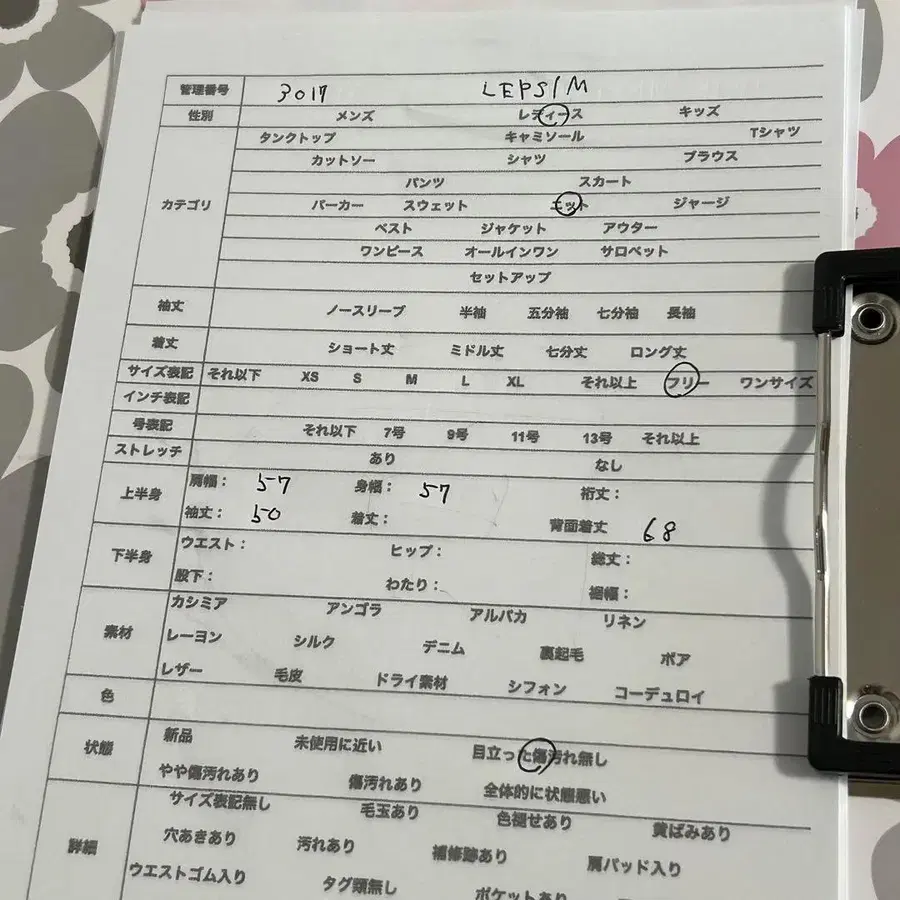 管理番号 3017 LEPSIM
性別 メンズ レディース キッズ
カテゴリ タンクトップ キャミソール Tシャツ
カットソー シャツ ブラウス
パンツ スカート
パーカー スウェット ニット ジャージ
ベスト ジャケット アウター
ワンピース オールインワン サロペット
セットアップ
袖丈 ノースリーブ 半袖 五分袖 七分袖 長袖
着丈 ショート丈 ミドル丈 七分丈 ロング丈
サイズ表記 それ以下 XS S M L XL それ以上 フリー ワンサイズ
インチ表記
号表記 それ以下 7号 9号 11号 13号 それ以上
ストレッチ あり なし
上半身 肩幅： 57 身幅： 57 裄丈：
袖丈： 50 着丈： 背面着丈 68
下半身 ウエスト： ヒップ： 総丈：
股下： わたり： 裾幅：
素材 カシミア アンゴラ アルパカ リネン
レーヨン シルク デニム 裏起毛 ボア
レザー 毛皮 ドライ素材 シフォン コーデュロイ
色
状態 新品 未使用に近い 目立った傷汚れ無し
やや傷汚れあり 傷汚れあり 全体的に状態悪い
詳細 サイズ表記無し 毛玉あり 色褪せあり 黄ばみあり
穴あきあり 汚れあり 補修跡あり 肩パッド入り
ウエストゴム入り タグ類無し ポケットあり